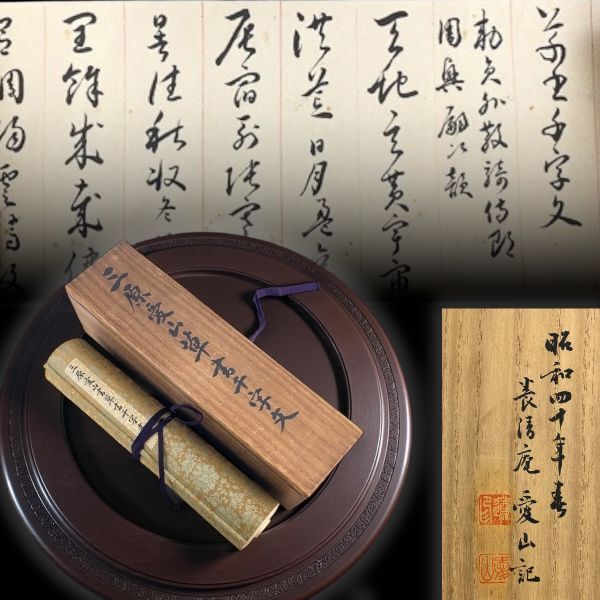 草書千字文
勅員外散騎侍郎
周興嗣次韻
天地玄黄宇宙
洪荒日月盈
辰宿列張寒
暑往秋収冬
閏餘成歳律
呂調陽雲騰致
三原愛山草書千字文
三原愛山草書千字
昭和四十年春
養清庵 愛山記